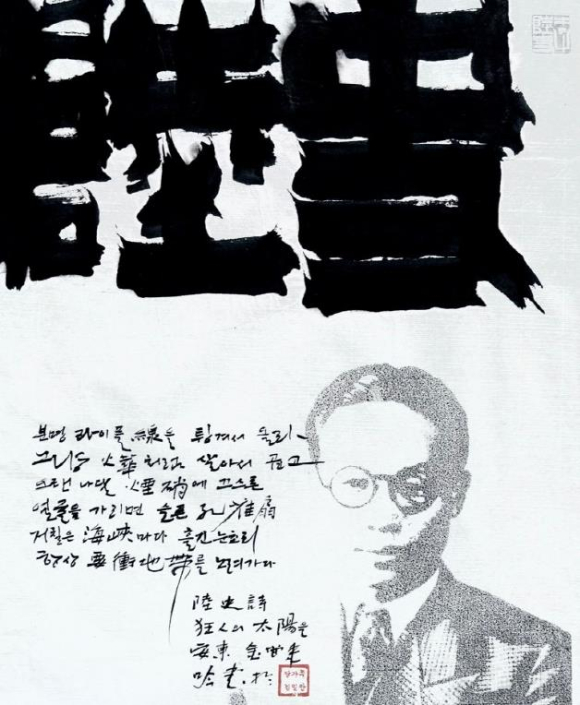 분명 라이플 線을 튕겨서 올라
그냥 火華처럼 살아서 곱고
오랜 나달 煙硝에 끄스른
얼굴을 가리면 슬픈 孔雀扇
거칠은 海峽마다 흘긴 눈초리
항상 要衝地帶를 노려가다
陸史詩
狂人의 太陽을
安東 金